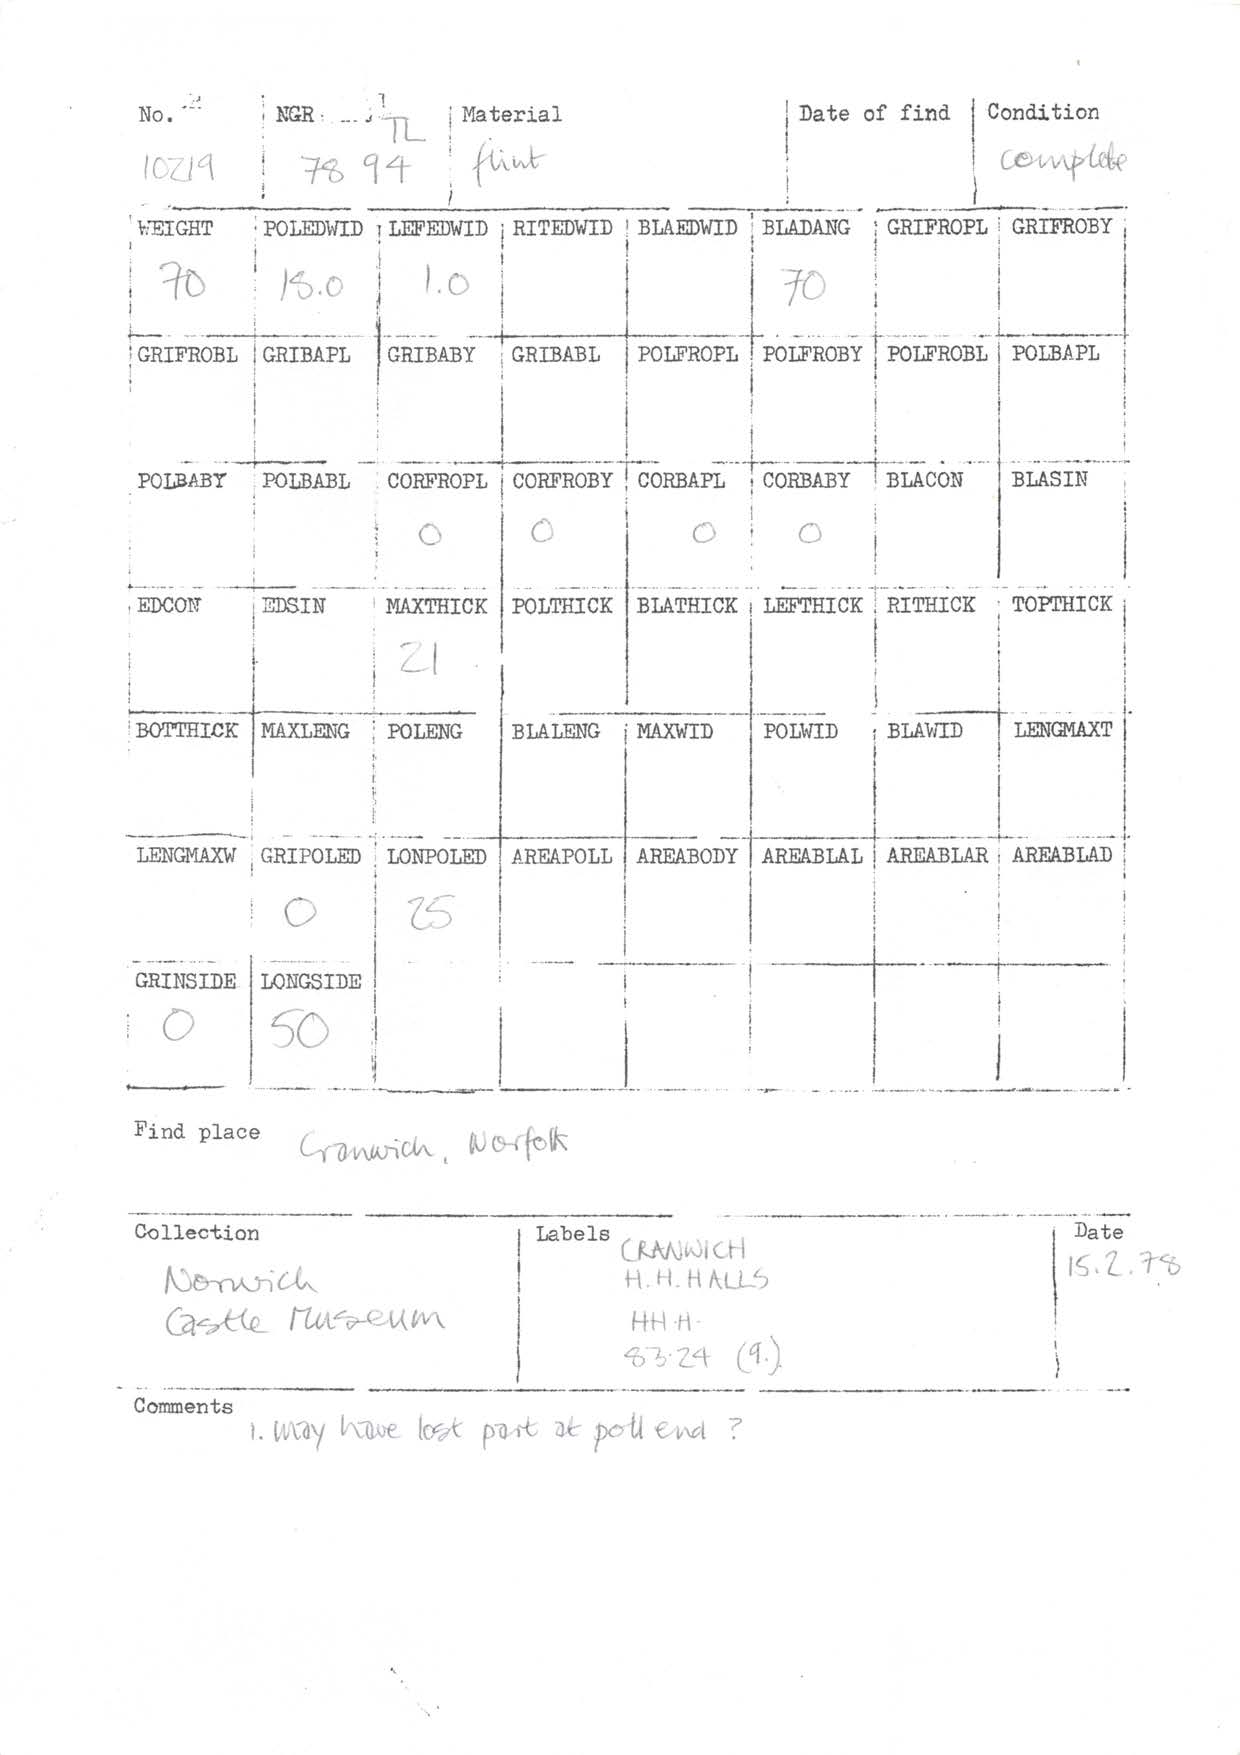 No. NGR TL Material Date of find Condition
10219 78 94 flint complete
WEIGHT POLEDWID LEFEDWID RITEDWID BLAEDWID BLADANG GRIFROPL GRIFROBY
70 18.0 1.0 70
GRIFROBL GRIBAPL GRIBABY GRIBABL POLFROPL POLFROBY POLFROBL POLBAPL
POLBABY POLBABL CORFROPL CORFROBY CORBAPL CORBABY BLACON BLASIN
0 0 0 0
EDCON EDSIN MAXTHICK POLTHICK BLATHICK LEFTHICK RITHICK TOPTHICK
21
BOTTHICK MAXLENG POLENG BLALENG MAXWID POLWID BLAWID LENGMAXT
LENGMAXW GRIPOLED LONPOLED AREAPOLL AREABODY AREABLAL AREABLAR AREABLAD
0 25
GRINSIDE LONGSIDE
0 50
Find place Cranwich, Norfolk
Collection Labels Date
Norwich
Castle Museum
CRANWICH
H.H.HALLS
HH.H.
83.24 (9.)
15.2.78
Comments
1. May have lost part at poll end ?